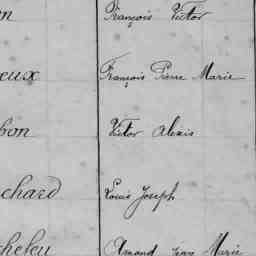 n François Victor
eux François Pierre Marie
bon Victor Alexis
chard Louis Joseph
cheleu Amand Jean Marie